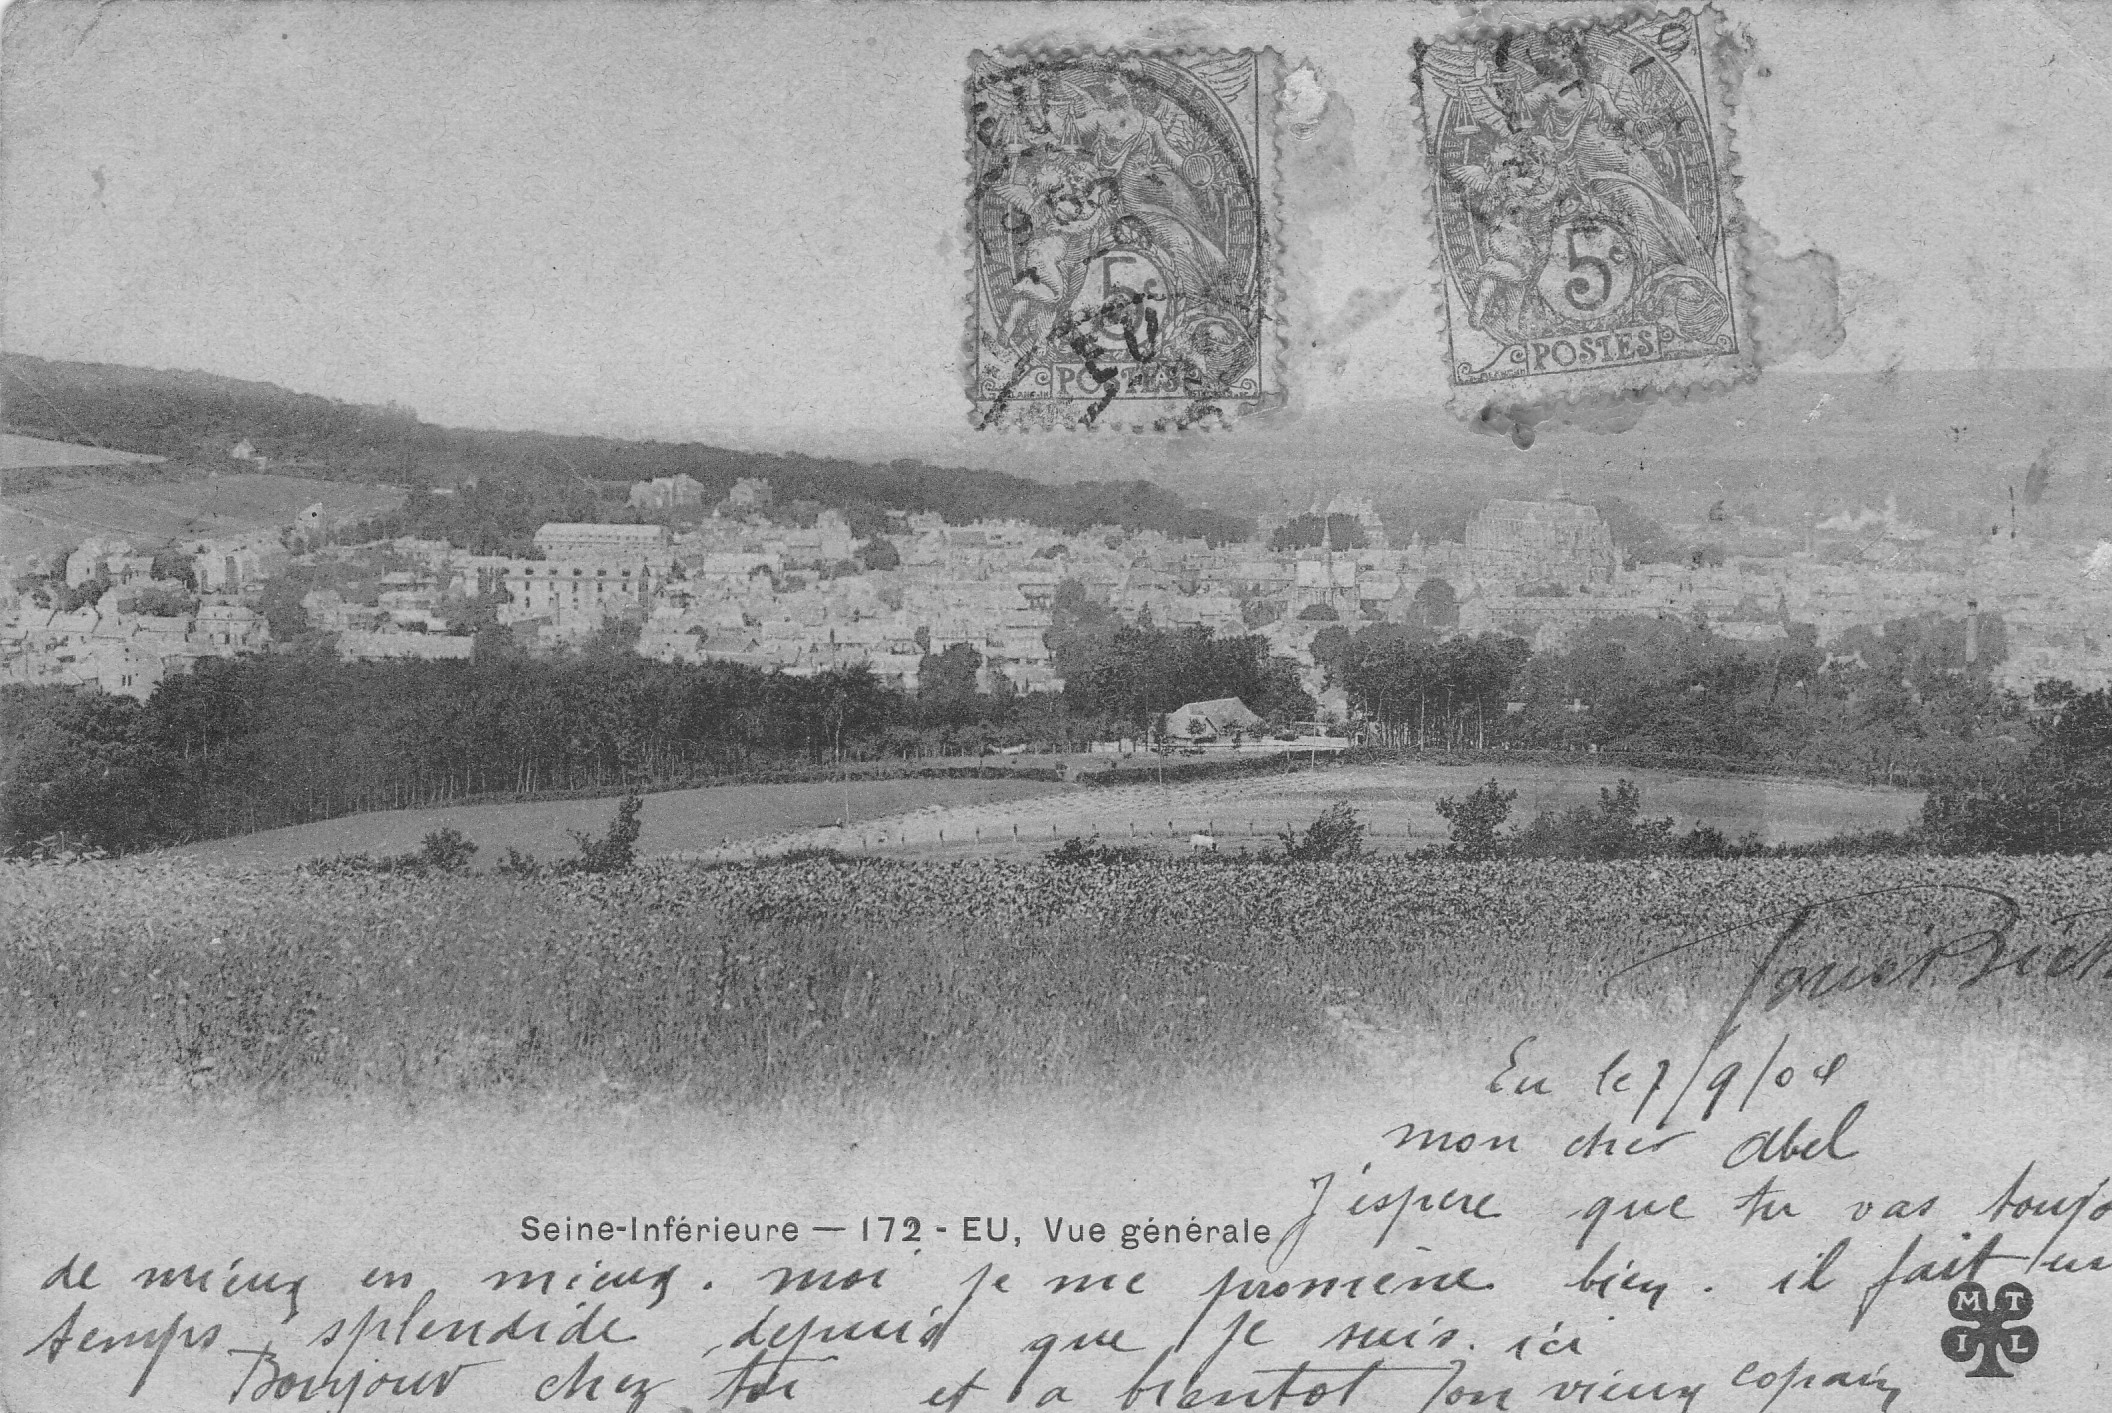 EU
5c
POSTES
EU
5c
POSTES
Louis
Eu le 7/9/04
mon cher Abel
J'espere que tu vas toujo
Seine-Inférieure — 172 - EU, Vue générale
de mieux en mieux. moi je me promène bien. il fait un
temps splendide depuis que je suis ici
Bonjour chez toi et a bientot Ton vieux copain
MTIL